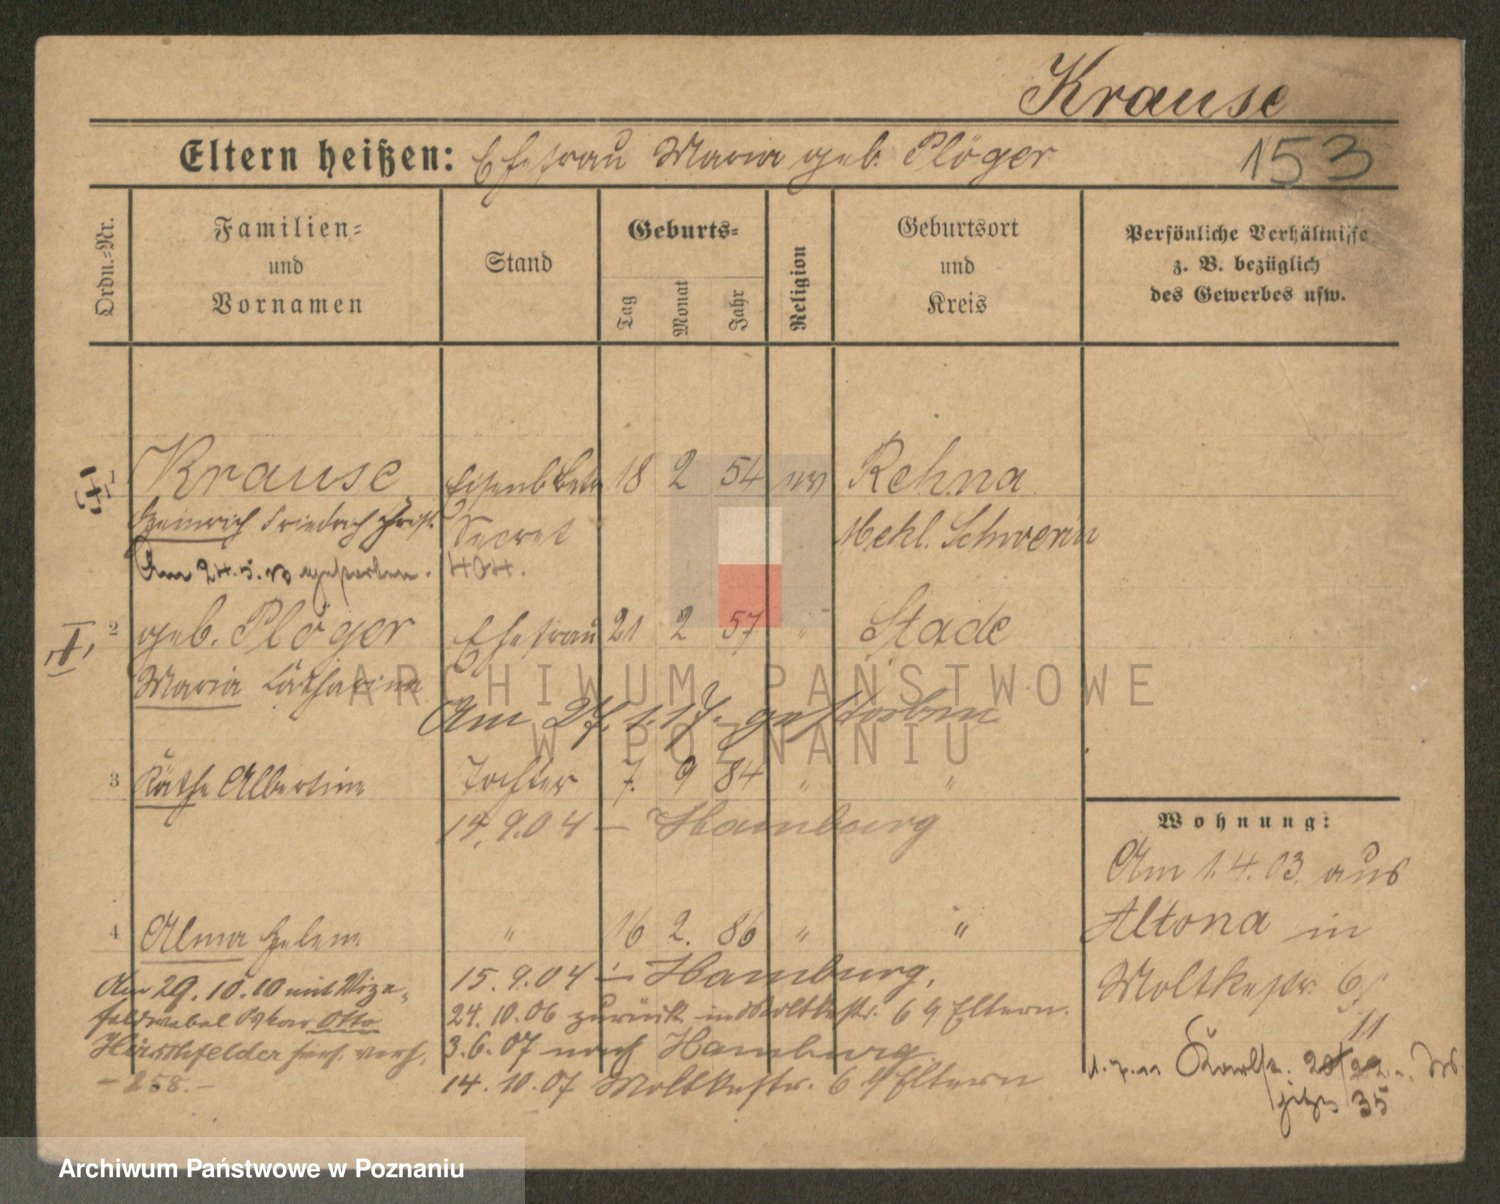 Krause
Eltern heißen: Ehefrau Maria geb. Plöger
153
Ordn.-Nr.
Familien-
und
Vornamen
Stand
Geburts-
Tag
Monat
Jahr
Religion
Geburtsort
und
Kreis
Persönliche Verhältnisse
z. B. bezüglich
des Gewerbes usw.
1 Krause 18 2 54 ev Rehna
Heinrich Friedrich Secret Mekl. Schwerin
Am 24.5. gestorben. 404.
2 geb. Plöger Ehefrau 21 2 57 " Stade
Maria Katharina
Am 27.1.17. gestorben
3 Käthe Albertine Tochter 7. 9 84 " "
14.9.04 – Hamburg
4 Alma Helene " 16 2. 86 " "
15.9.04 – Hamburg.
Am 29.10.10 mit Vize-
feldwebel Oskar Otto
Hirschfelder verh.
– 258. –
24.10.06 zurück in Moltkestr. 6 Eltern.
3.6.07 nach Hamburg.
14.10.07 Moltkestr. 6 Eltern
Wohnung:
Am 1.4.03. aus
Altona in
Moltkestr 6
11
35
ARCHIWUM PAŃSTWOWE
W POZNANIU
Archiwum Państwowe w Poznaniu